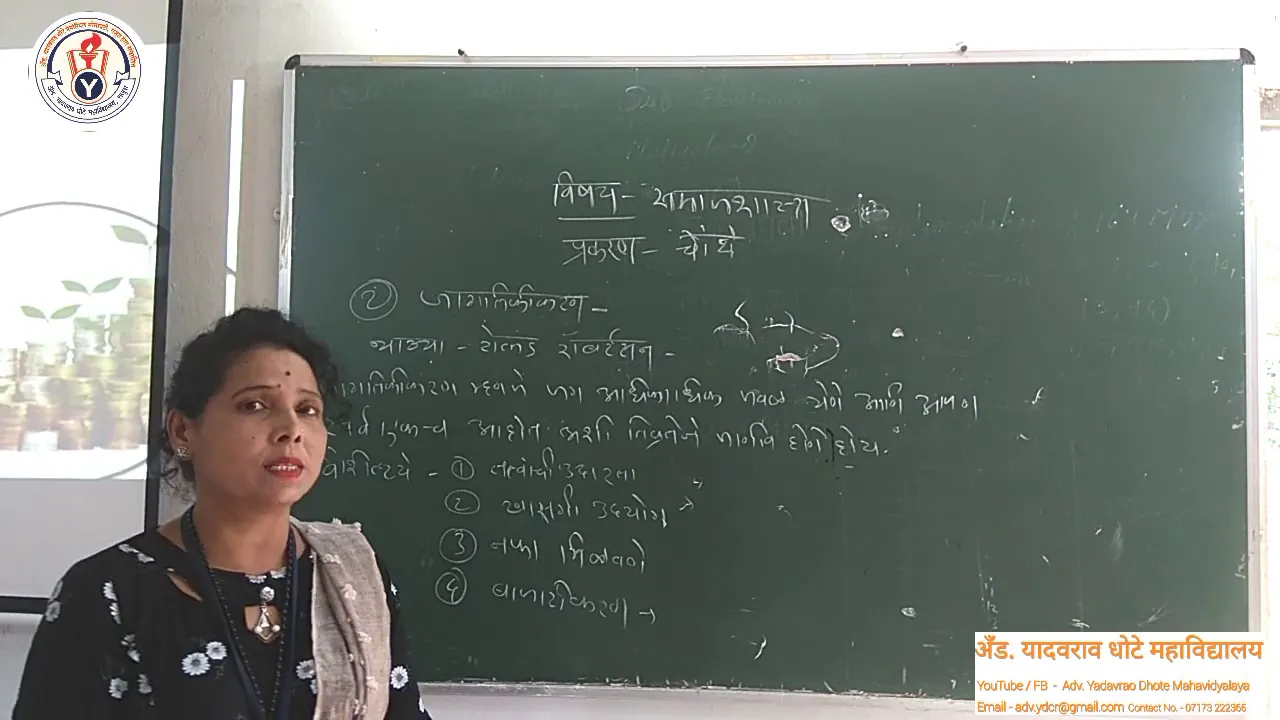 विषय - समाजशास्त्र
प्रकरण - चौथे
② जागतिकीकरण -
व्याख्या - रोलंड रॉबर्टसन -
जागतिकीकरण म्हणजे जग अधिकाधिक जवळ येणे आणि आपण
सर्व एकच आहोत अशी तिव्रतेने जाणीव होणे होय.
वैशिष्ट्ये - ① तत्वांची उदारता
② खासगी उद्योग
③ नफा मिळवणे
④ बाजारीकरण
अँड. यादवराव धोटे महाविद्यालय
YouTube / FB - Adv. Yadavrao Dhote Mahavidyalaya
Email - adv.ydcr@gmail.com Contact No. - 07173 222355